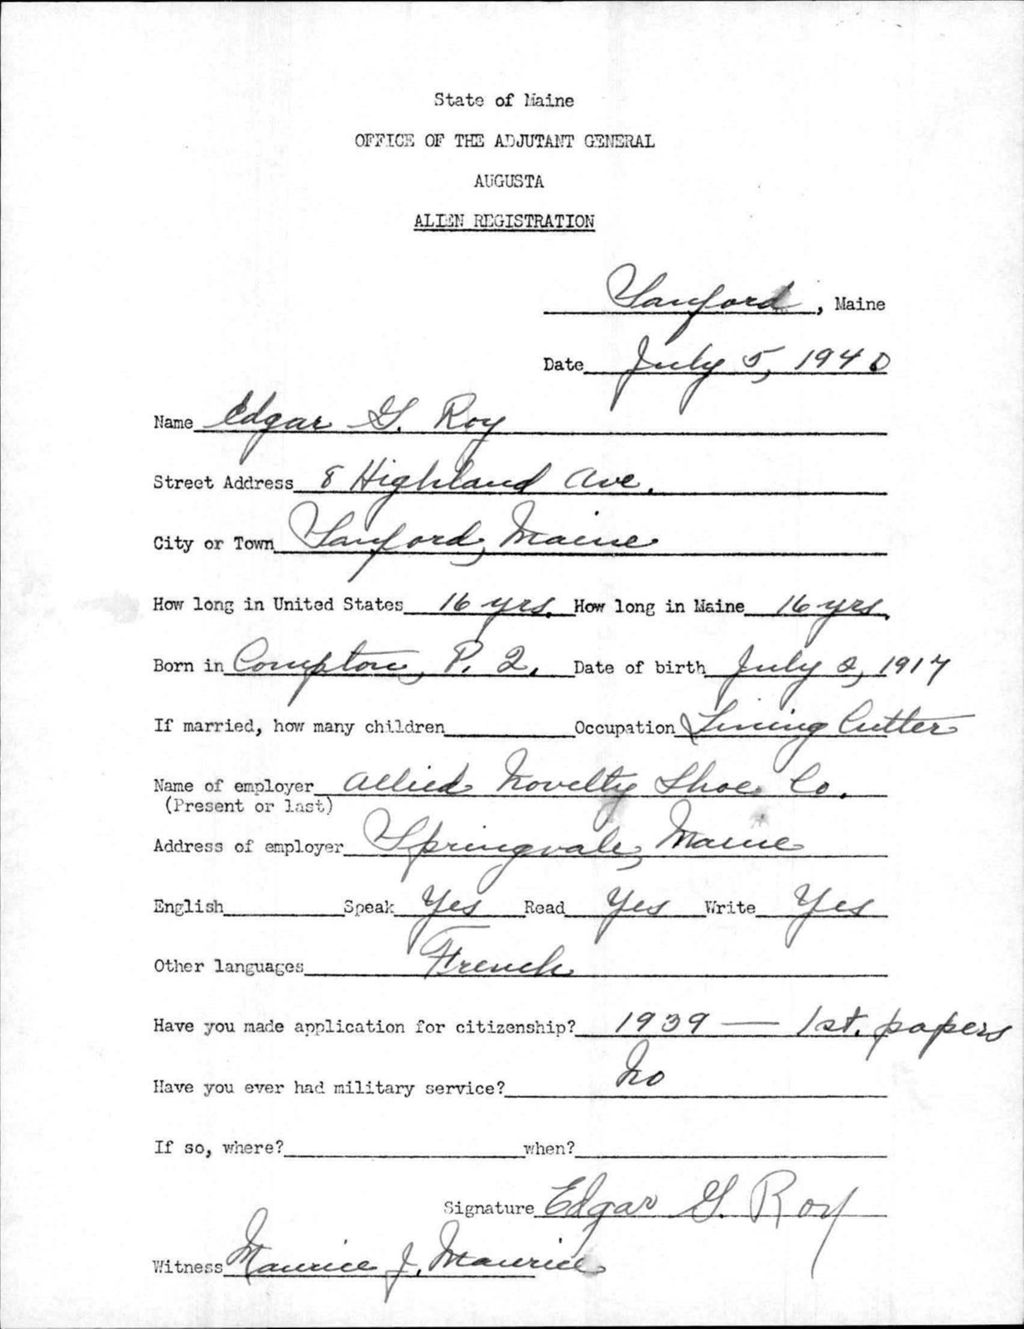 State of Maine
OFFICE OF THE ADJUTANT GENERAL
AUGUSTA
ALIEN REGISTRATION
Sanford, Maine
Date July 5, 1940
Name Edgar G. Roy
Street Address 8 Highland Ave.
City or Town Sanford, Maine
How long in United States 16 yrs. How long in Maine 16 yrs.
Born in Compton, P. Q. Date of birth July 2, 1917
If married, how many children Occupation Lining Cutter
Name of employer Allied Novelty Shoe Co.
(Present or last)
Address of employer Springvale, Maine
English Speak Yes Read Yes Write Yes
Other languages French
Have you made application for citizenship? 1939 — 1st. papers
Have you ever had military service? No
If so, where? when?
Signature Edgar G. Roy
Witness Maurice J. Maurice